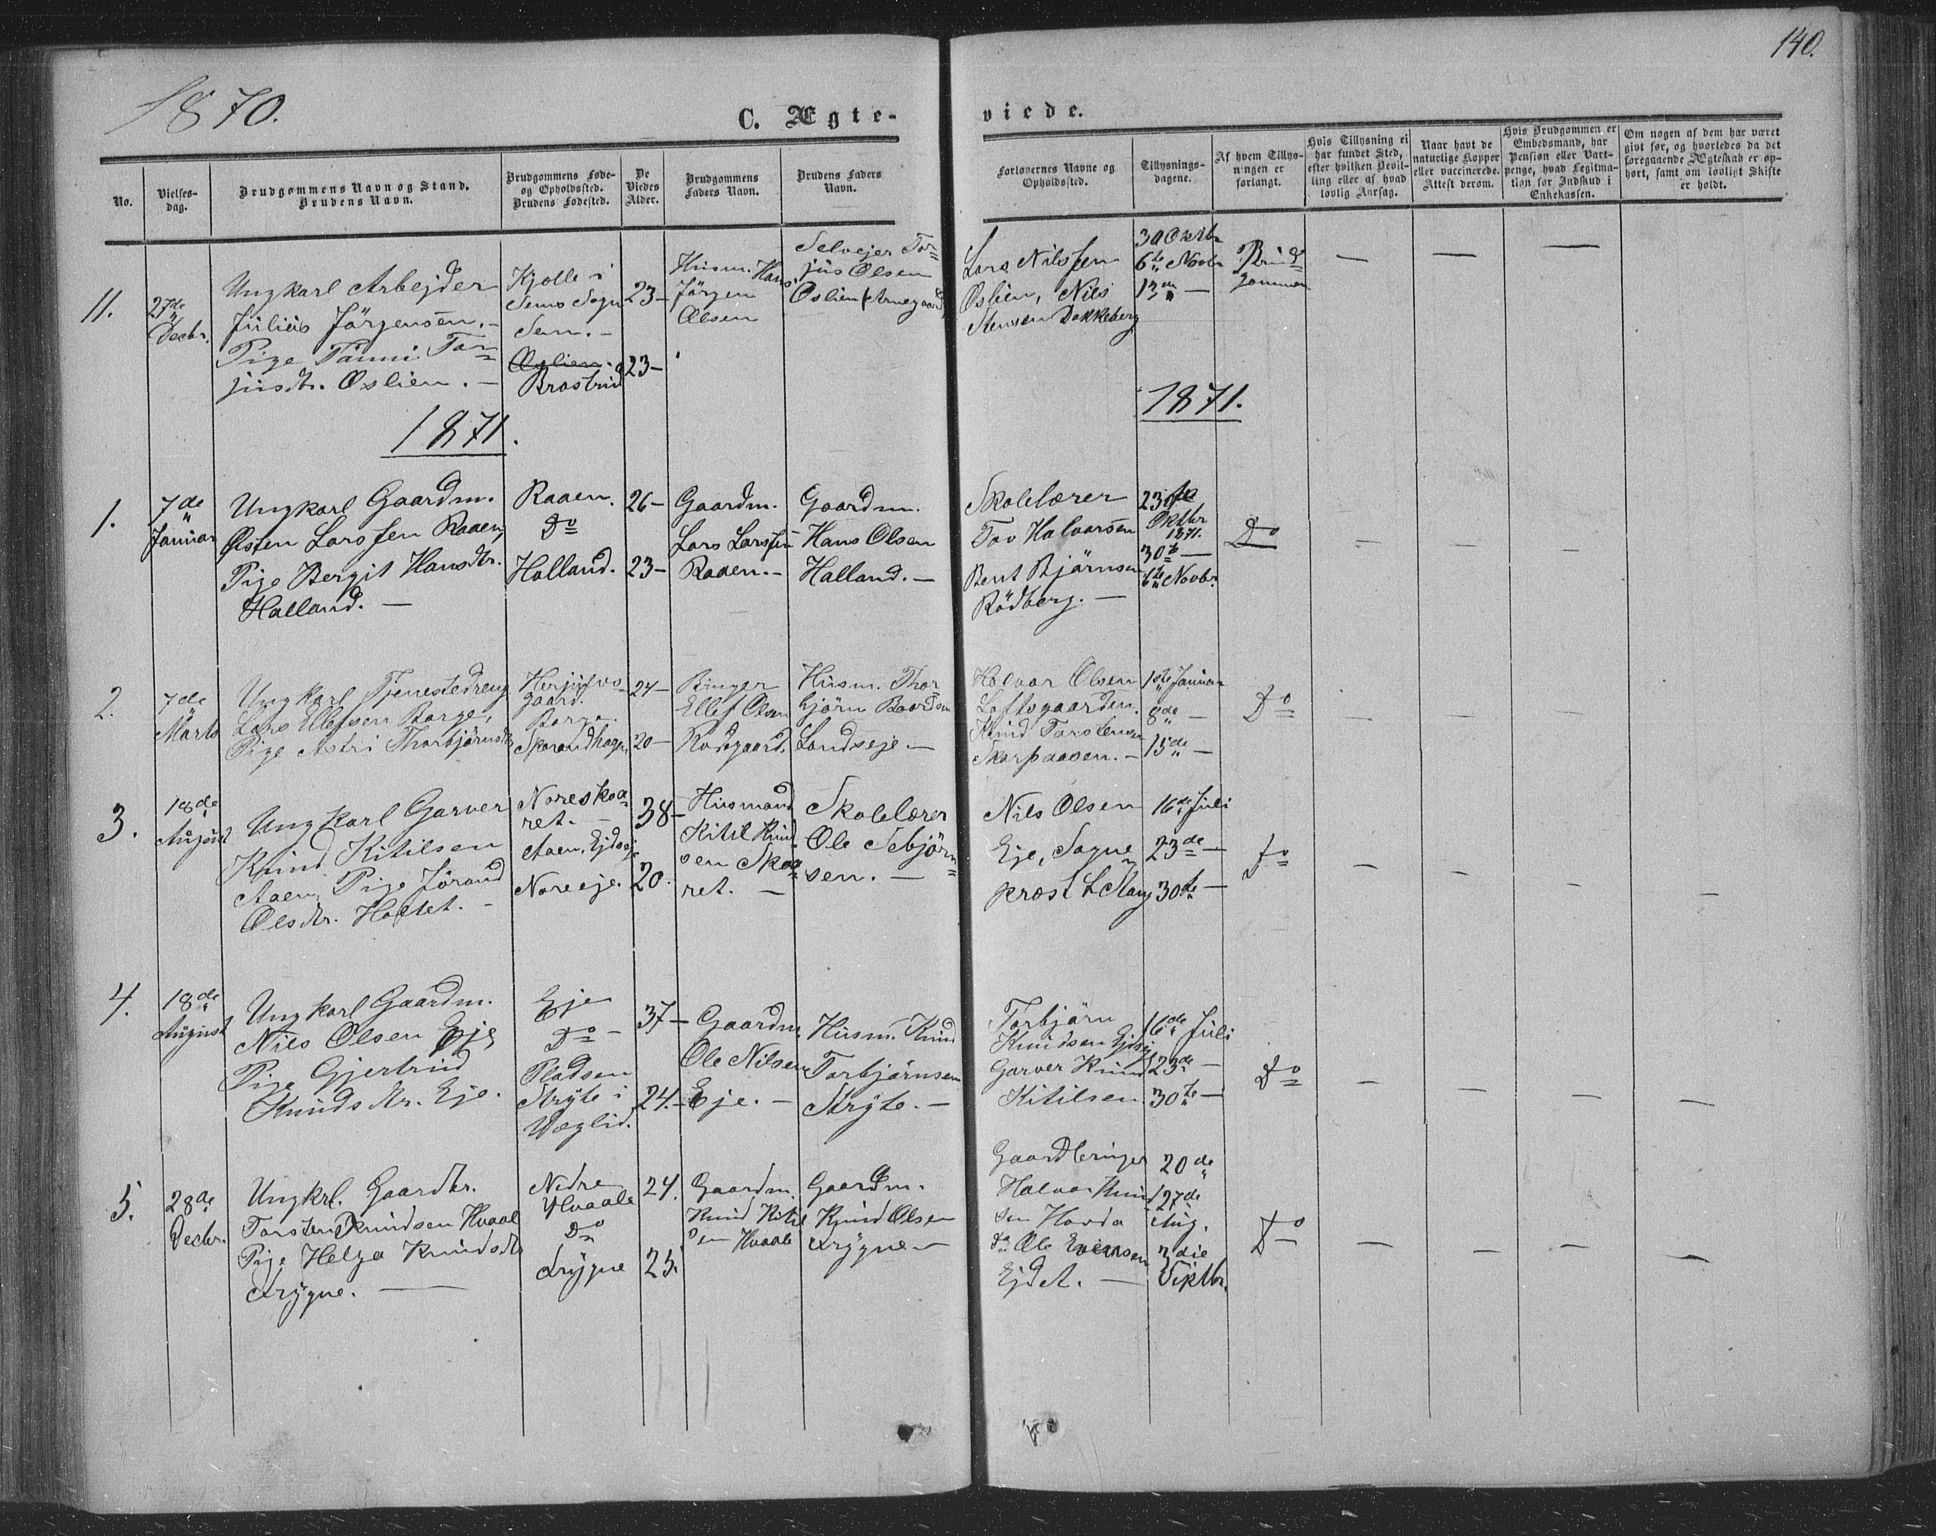 140.
1870.
C. Ægte-
viede.
No.
Vielses-
dag.
Brudgommens Navn og Stand.
Brudens Navn.
Brudgommens Føde-
og Opholdssted.
Brudens Fødested.
De
Viedes
Alder.
Brudgommens
Faders Navn.
Brudens Faders
Navn.
Forlovernes Navne og
Opholdssted.
Tillysnings-
dagene.
Af hvem Tillys-
ningen er
forlangt.
Hvis Tillysning ei
har fundet Sted,
efter hvilken Bevil-
ling eller af hvad
lovlig Aarsag.
Naar havt de
naturlige Kopper
eller vaccinerede.
Attest derom.
Hvis Brudgommen er
Embedsmand, har
Pension eller Vart-
penge, hvad Legitma-
tion for Indskud i
Enkekassen.
Om nogen af dem har været
givt før, og hvorledes da det
foregaaende Ægteskab er op-
hørt, samt om lovligt Skifte
er holdt.
11.
27de
Decbr.
Ungkarl Arbejder
Julius Jörgensen. -
Pige Tanni Tor-
jusdtr. Oslien. -
Kjölle i
Sems Sogn
Sem. -
Oslien.
Brostrud
23-
23-
Husm. Hans
Jörgen
Olsen
Selvejer Tor-
jus Olsen
Oslien (Arnegaard)
Lars Nilssen
Oslien, Nils
Stensen Dokkeberg
30 Oktbr
6te Novbr
13de -
Brud-
gommen
— — —
1871.
1871.
1.
7de
Januar
Ungkarl Gaardm.
Østen Larssen Raaen,
Pige Bergit Hansdtr.
Halland. —
Raaen.
Do
Halland.
26-
23-
Gaardm.
Lars Larssen
Raaen. -
Gaardm.
Hans Olsen
Halland. -
Skolelærer
Tov Halvorsen
Bent Björnsen
Rödberg. -
23de
Oktbr
1871.
30te -
6te Novbr
Do
— — —
2.
7de
Marts
Ungkarl Tjenestedreng
Lars Ellefsen Borge,
Pige Astri Thorbjörnsdtr
Herjufvs-
gaard.
Borge.
24-
20-
Ellef Olsen
Husm. Thor-
björn Baardsen
Landseje. -
Halvor Olsen
Loftsgaarden.
Knud Torstensen
Skarpaasen. -
1ste Januar
8de -
15de -
Do
— — —
3.
18de
August
Ungkarl Garver
Knud Kitilsen
Aaen, Pige Jörand
Olsdtr. Holtet. -
Noreskoa-
ret. -
Aaen, Ejdseje
Noreeje.
38-
20.
Husmand
Kitil Knud-
sen Skoa-
ret. -
Skolelærer
Ole Sebjörn-
sen. -
Nils Olsen
Eje, Sogne
prost L. Stang
16de Juli
23de -
30te -
Do
— — — —
4.
18de
August
Ungkarl Gaardm.
Nils Olsen Eje,
Pige Gjertrud
Knudsdtr. Eje.
Eje
Do -
Pladsen
Stryte i
Væglid.
37-
24.-
Gaardm.
Ole Nilsen
Eje. -
Husm. Knud
Torbjörnsen
Stryte. -
Torbjörn
Knudsen Ejdsje
Garver Knud
Kitilsen
16de Juli
23de -
30te -
Do
— — — —
5.
28de
Decbr.
Ungkrl. Gaardbr.
Torsten Knudsen Hvaal
Pige Helga Knudsdtr
Frygne. —
Nedre
Hvaale
Do
Frygne
24.
23.
Gaardm.
Knud Kitil
sen Hvaale
Gaardm.
Knud Olsen
Frygne -
Gaardbruger
Halvor Knud
sen Hovda
do Ole Evensen
Ejdet. —
20de
27de
Aug.
3die
Septbr.
Do
— — — —